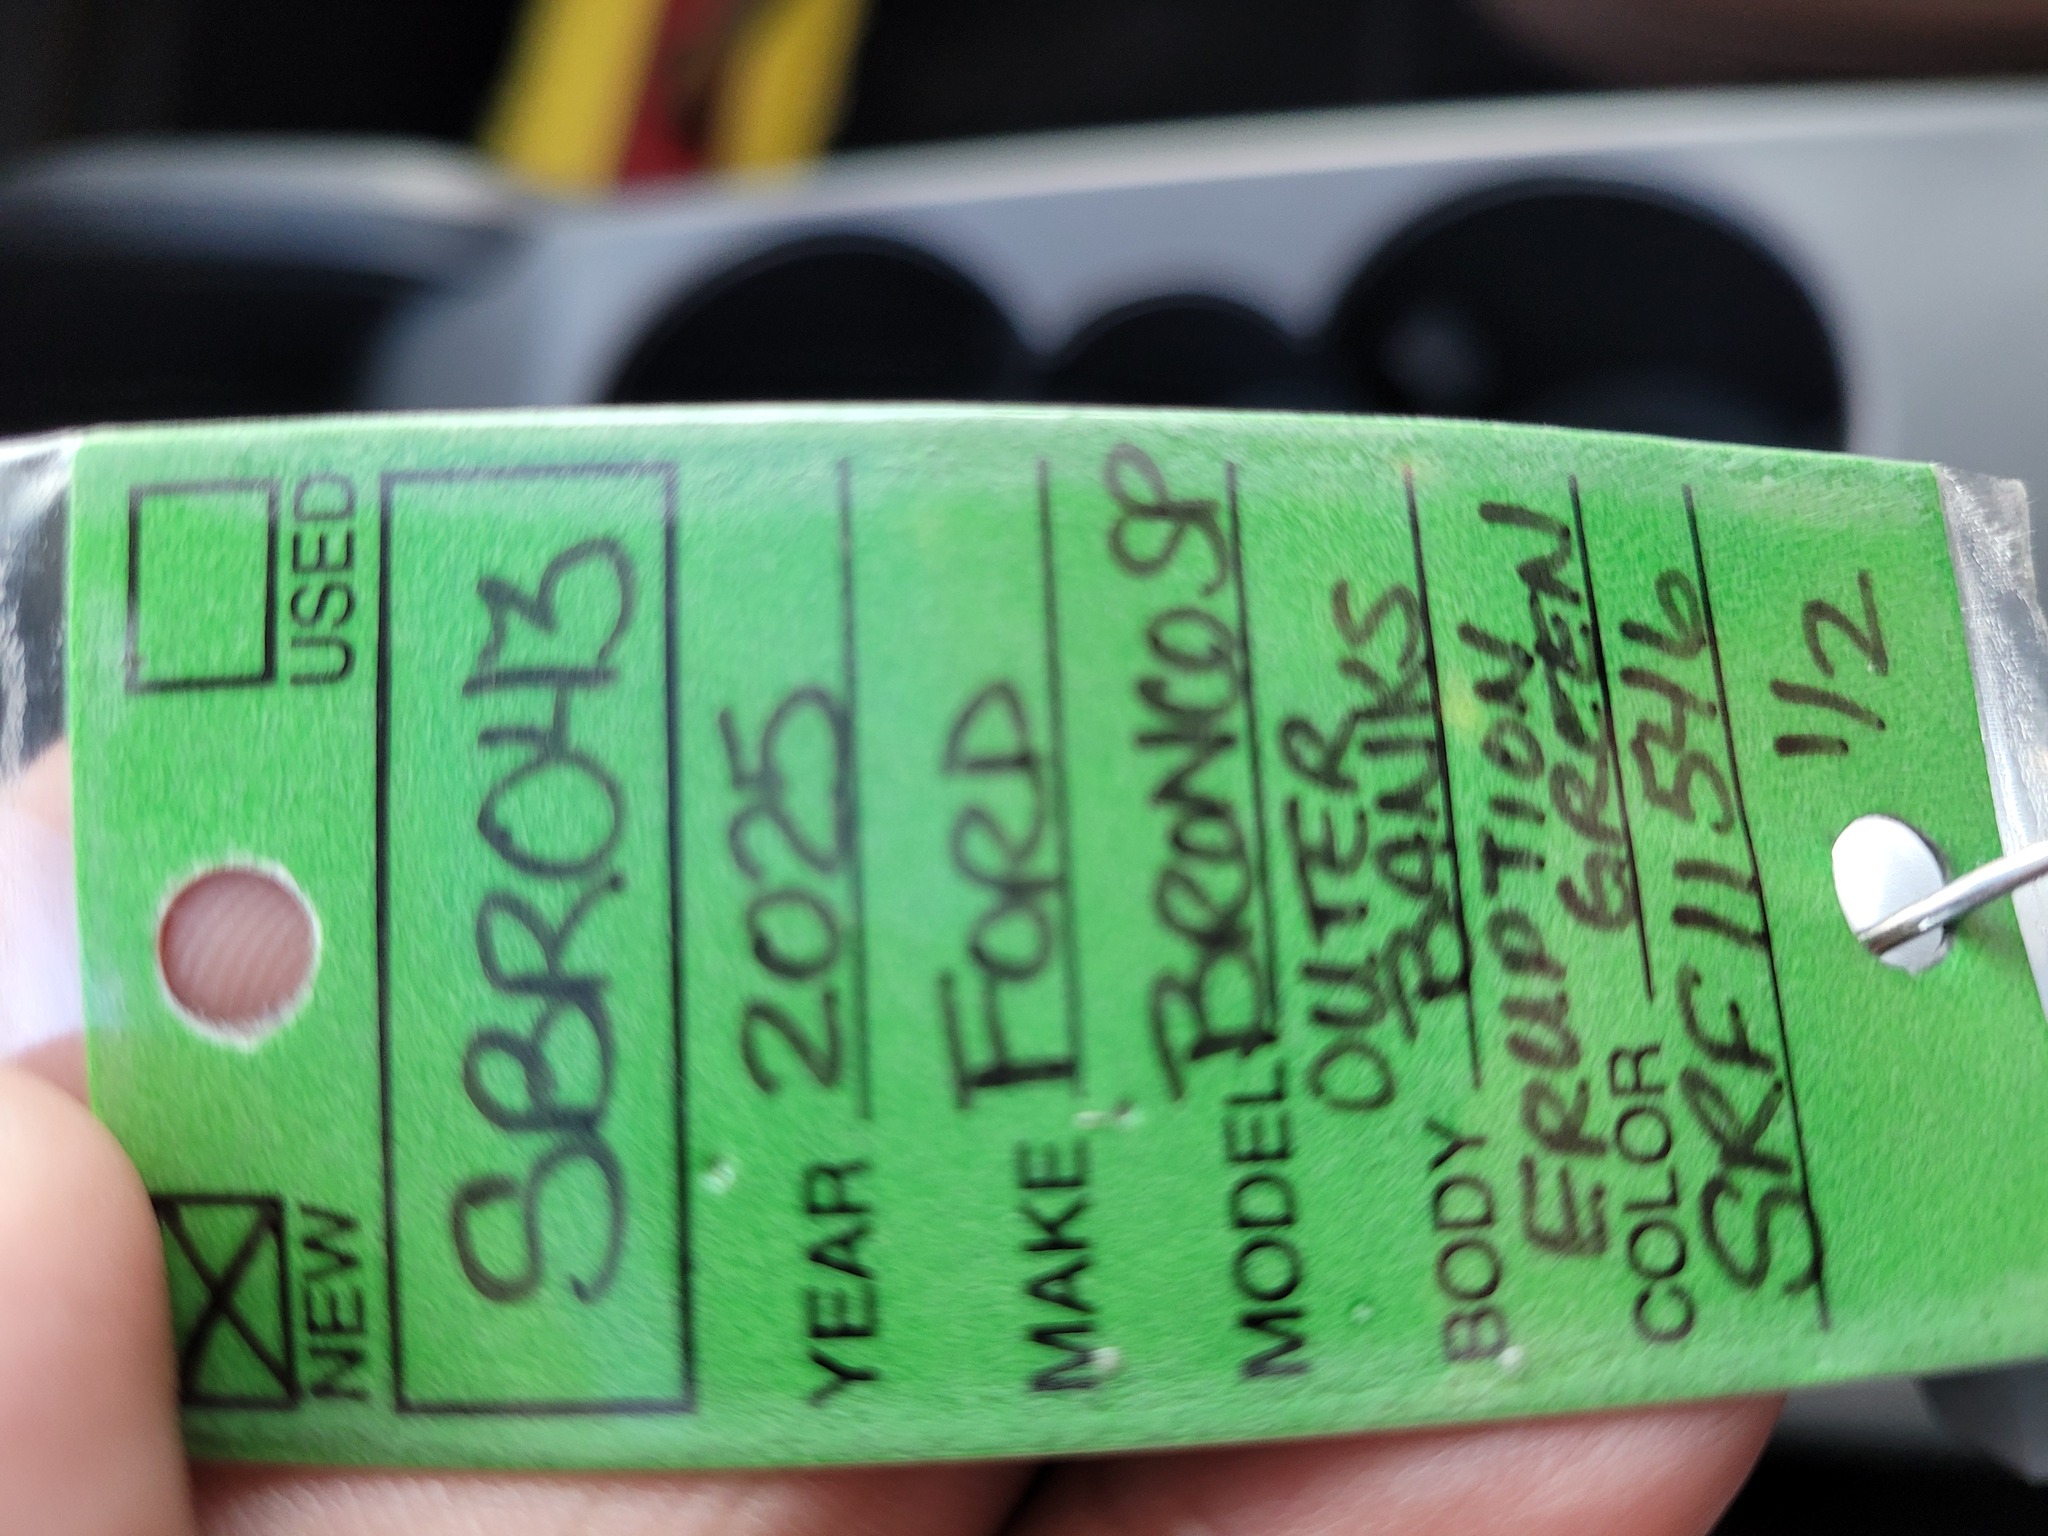 NEW USED
SBR043
YEAR 2025
MAKE FORD
MODEL BRONCO SP
OUTER
BODY BANKS
ERUPTION
COLOR GREEN
SRF 115416
1/2